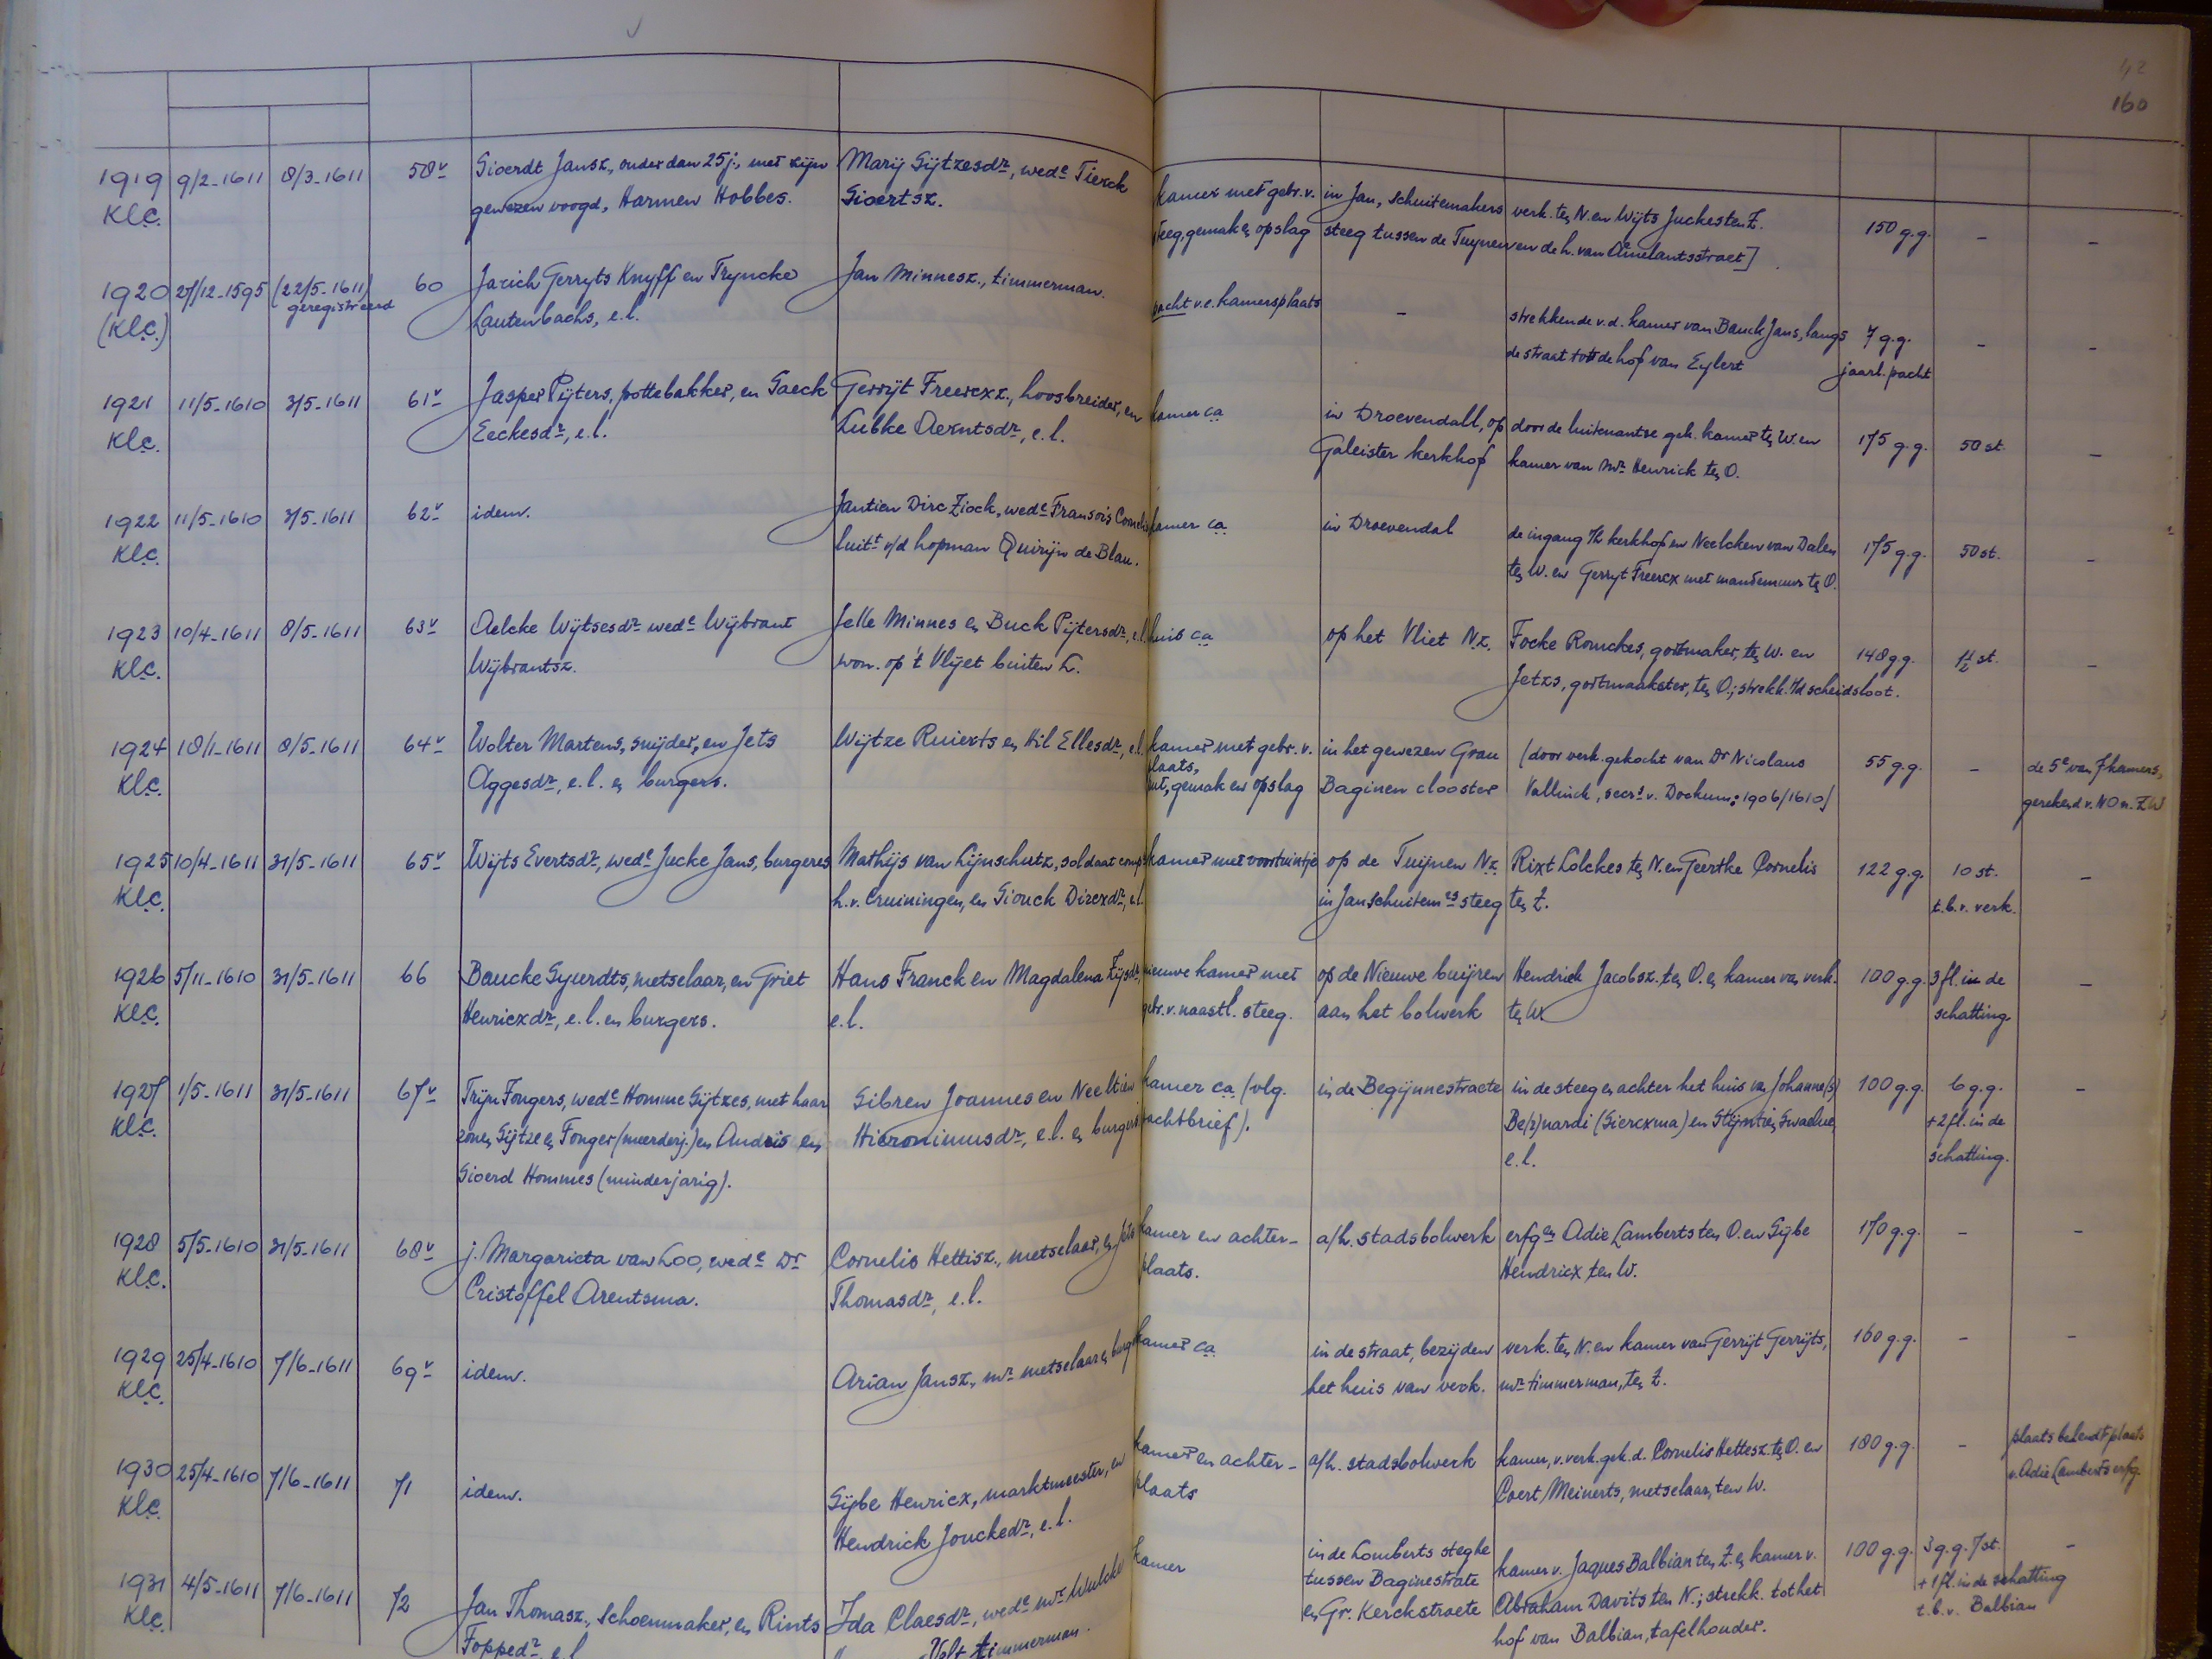 42
160
1919 9/2-1611 8/3-1611 58v Sioerdt Jansz., ouder dan 25 j., met zijn Marij Sijtzesdr, wede Tierck kamer met gebr. v. in Jan, Schuitemakers verk. ten N. en Wijts Juckes ten Z. 150 g.g. - -
Klc. gewezen voogd, Harmen Hobbes. Sioertsz. steeg, gemak en opslag steeg tussen de Tuynen en de h. van Amelantsstraet]
1920 27/12-1595 (22/5-1611) 60 Jarich Gerryts Knyff en Tryncke Jan Minnesz., timmerman. pacht v.e. kamersplaats - strekkende v.d. kamer van Bauck Jans, langs 7 g.g. - -
(Klc.) geregistreerd Lautenbachs, e.l. de straat tot de hof van Eylert jaarl. pacht
1921 11/5-1610 3/5-1611 61v Jasper Pijters, pottebakker, en Saeck Gerrijt Freercxz., hoosbreider, en kamer ca in Droevendall, op door de luitenantse gek. kamer ten W. en 175 g.g. 50 st. -
Klc. Eeckesdr, e.l. Lubke Aerntsdr, e.l. Galeister kerkhof kamer van mr Henrick ten O.
1922 11/5-1610 3/5-1611 62v idem. Jantien Dirc Ziock, wede Fransois Cornelis kamer ca in Droevendal de ingang 't kerkhof en Neelcken van Dalen 175 g.g. 50 st. -
Klc. luitt v/d hopman Quirijn de Blau. ten W. en Gerryt Freercx met mandemuur ten O.
1923 10/4-1611 8/5-1611 63v Aelcke Wijtsesdr wede Wijbrant Jelle Minnes en Buck Pijtersdr, e.l. huis ca op het Vliet Nz. Focke Romckes, gortmaker, ten W. en 148 g.g. 1½ st. -
Klc. Wijbrantsz. won. op 't Vlijet buiten L. Jetzs, gortmaakster, ten O.; strekk. t/d scheidsloot.
1924 18/1-1611 8/5-1611 64v Wolter Martens, snijder, en Jets Wijtze Ruierts en Hil Ellesdr, e.l. kamer met gebr. v. in het gewezen Grau (door verk. gekocht van Dr Nicolaus 55 g.g. - de 5e van 7 kamers,
Klc. Aggesdr, e.l. en burgers. plaats, put, gemak en opslag Baginen clooster Vallinck, secrs v. Dockum; 1906/1610) gerekend v. NO n. ZW
1925 10/4-1611 31/5-1611 65v Wijts Evertsdr, wede Jucke Jans, burgeres Mathijs van Lijnschutz, soldaat comp. kamer met voortuintje op de Tuijnen Nz. Rixt Lolckes ten N. en Geertke Cornelis 122 g.g. 10 st. -
Klc. h. v. Cruiningen, en Siouck Dircxdr, e.l. in Jan Schuitemrs steeg ten Z. t.b.v. verk.
1926 5/11-1610 31/5-1611 66 Baucke Syurdts, metselaar, en Griet Hans Franck en Magdalena Zijsdr, nieuwe kamer met op de Nieuwe buijren Hendrick Jacobsz. ten O. en kamer van verk. 100 g.g. 3 fl. in de -
Klc. Henricxdr, e.l. en burgers. e.l. gebr. v. naastl. steeg. aan het bolwerk ten W. schatting
1927 1/5-1611 31/5-1611 67v Trijn Fongers, wede Homme Sijtzes, met haar Sibren Joannes en Neeltien kamer ca (vlg. in de Begijnnestraete in de steeg en achter het huis van Johanne(s) 100 g.g. 6 g.g. -
Klc. zonen Sijtze en Fonger (meerderj.) en Andris en Hieronimusdr, e.l. en burgers pachtbrief). Be(r)nardi (Siercxma) en Stijntien Swaelue +2 fl. in de
Sioerd Hommes (minderjarig). e.l. schatting.
1928 5/5-1610 31/5-1611 68v j. Margarieta van Loo, wede Dr Cornelis Hettisz., metselaar, en Jets kamer en achter- a/h. stadsbolwerk erfgen Adie Lamberts ten O. en Sijbe 170 g.g. - -
Klc. Cristoffel Arentsma. Thomasdr, e.l. plaats. Hendricx ten W.
1929 25/4-1610 7/6-1611 69v idem. Arian Jansz., mr metselaar en burger kamer ca in de straat, bezijden verk. ten N. en kamer van Gerrijt Gerrijts, 160 g.g. - -
Klc. het huis van verk. mr timmerman, ten Z.
1930 25/4-1610 7/6-1611 71 idem. Sijbe Henricx, marktmeester, en kamer en achter- a/h. stadsbolwerk kamer, v. verk. gek. d. Cornelis Hettesz. ten O. en 180 g.g. - plaats belendt plaats
Klc. Hendrick Jouckedr, e.l. plaats Coert Meinerts, metselaar, ten W. v. Adie Lamberts erfg.
1931 4/5-1611 7/6-1611 72 Jan Thomasz., schoenmaker, en Rints Ida Claesdr, wede mr Wulcke kamer in de Lomberts steghe kamer v. Jaques Balbian ten Z. en kamer v. 100 g.g. 3 g.g. 7 st. -
Klc. Foppedr, e.l. Velt timmerman. tussen Baginestrate Abraham Davits ten N.; strekk. tot het + 1 fl. in de schatting
en Gr. Kerckstraete hof van Balbian, tafelhouder. t.b.v. Balbian